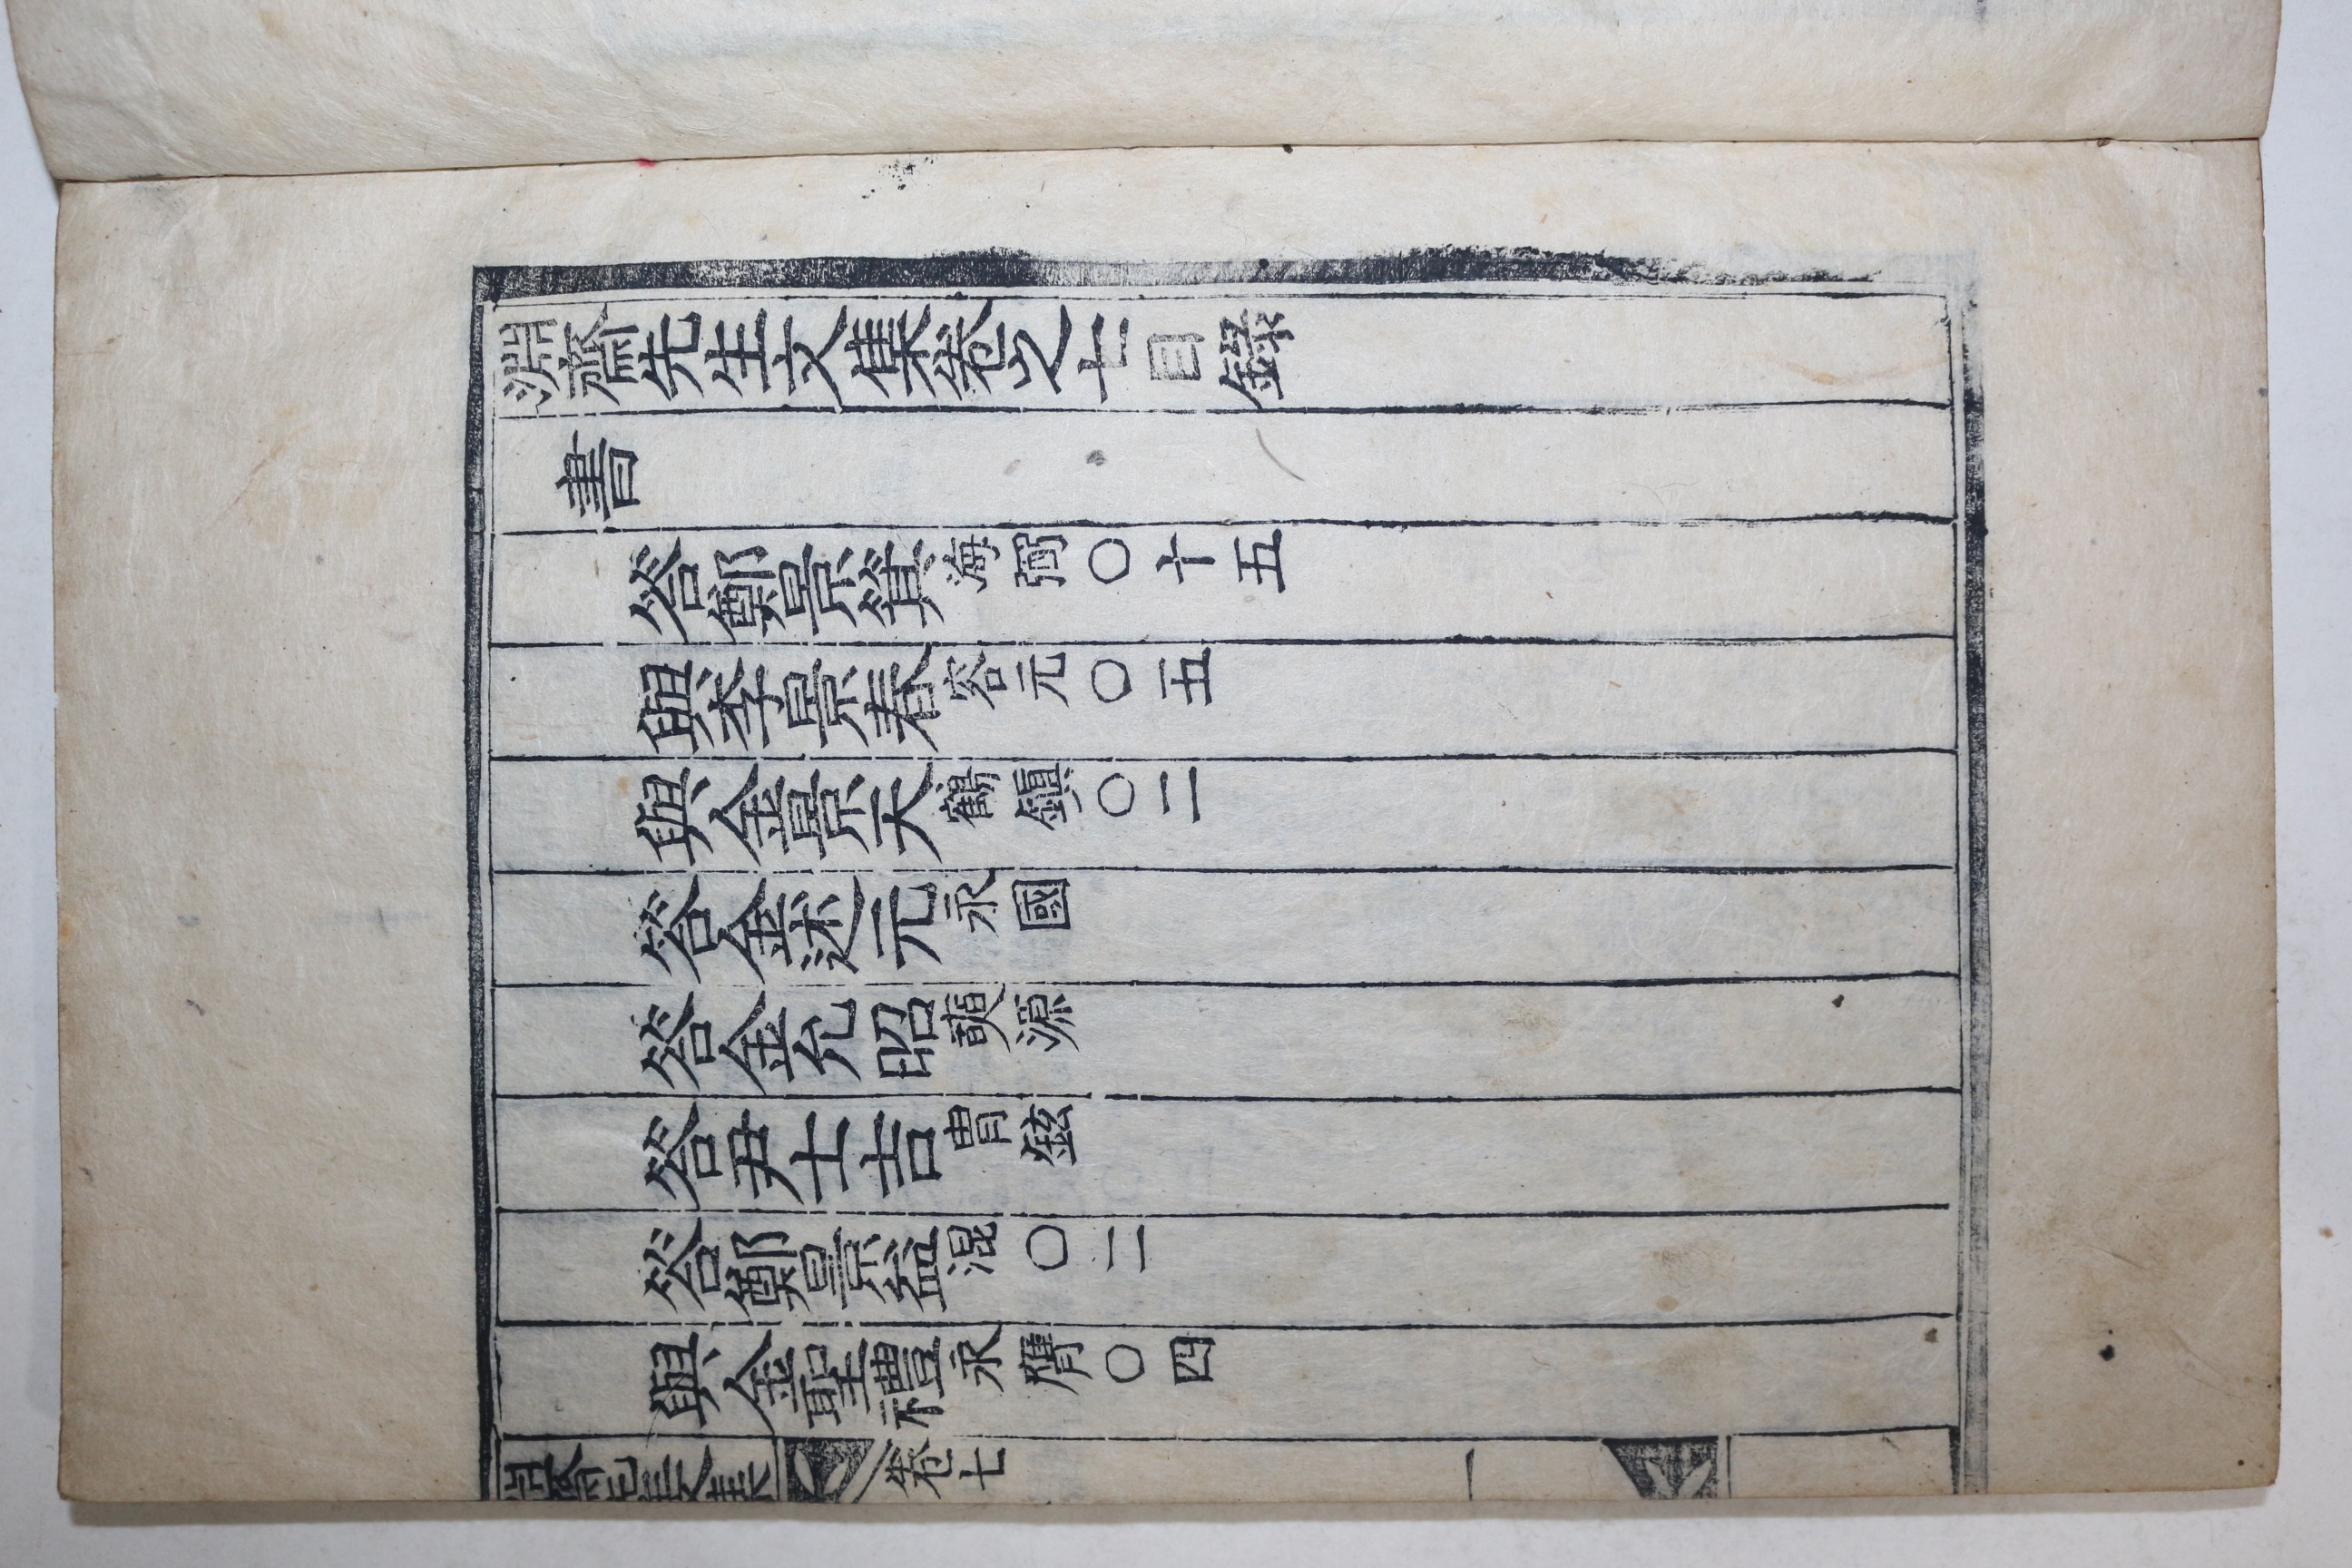 淵齋先生文集卷之七目錄
書
答鄭景箕海弼○十五
與李景春容元○五
與金景天鶴鎭○二
答金述元永國
答金允昭夔源
答尹士吉冑鉉
答鄭景益混○二
與金聖禮永膺○四
淵齋先生文集 卷七 一